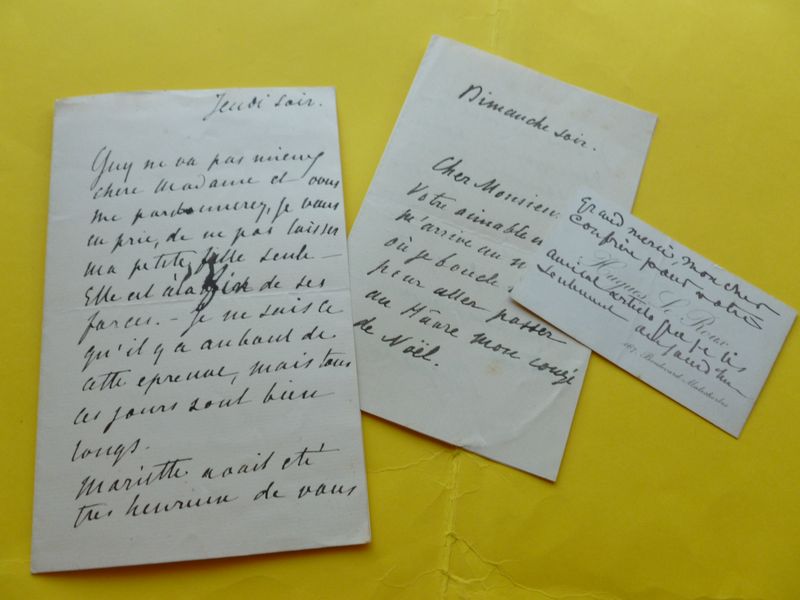 Jeudi soir.
Guy ne va pas mieux
chère Madame et vous
me pardonnerez, je vous
en prie, de ne pas laisser
ma petite fille seule —
Elle est à la fin de ses
forces. — Je ne sais ce
qu'il y a au bout de
cette épreuve, mais tous
ces jours sont bien
longs.
Mariette avait été
très heureuse de vous
Dimanche soir.
Cher Monsieur
Votre aimable
m'arrive au
où je boucle
pour aller passer
au Hâvre mon congé
de Noël.
Grand merci, mon cher
Confrère pour votre
amical article que je lis
seulement aujourd'hui
Hugues Le Roux
Boulevard Malesherbes